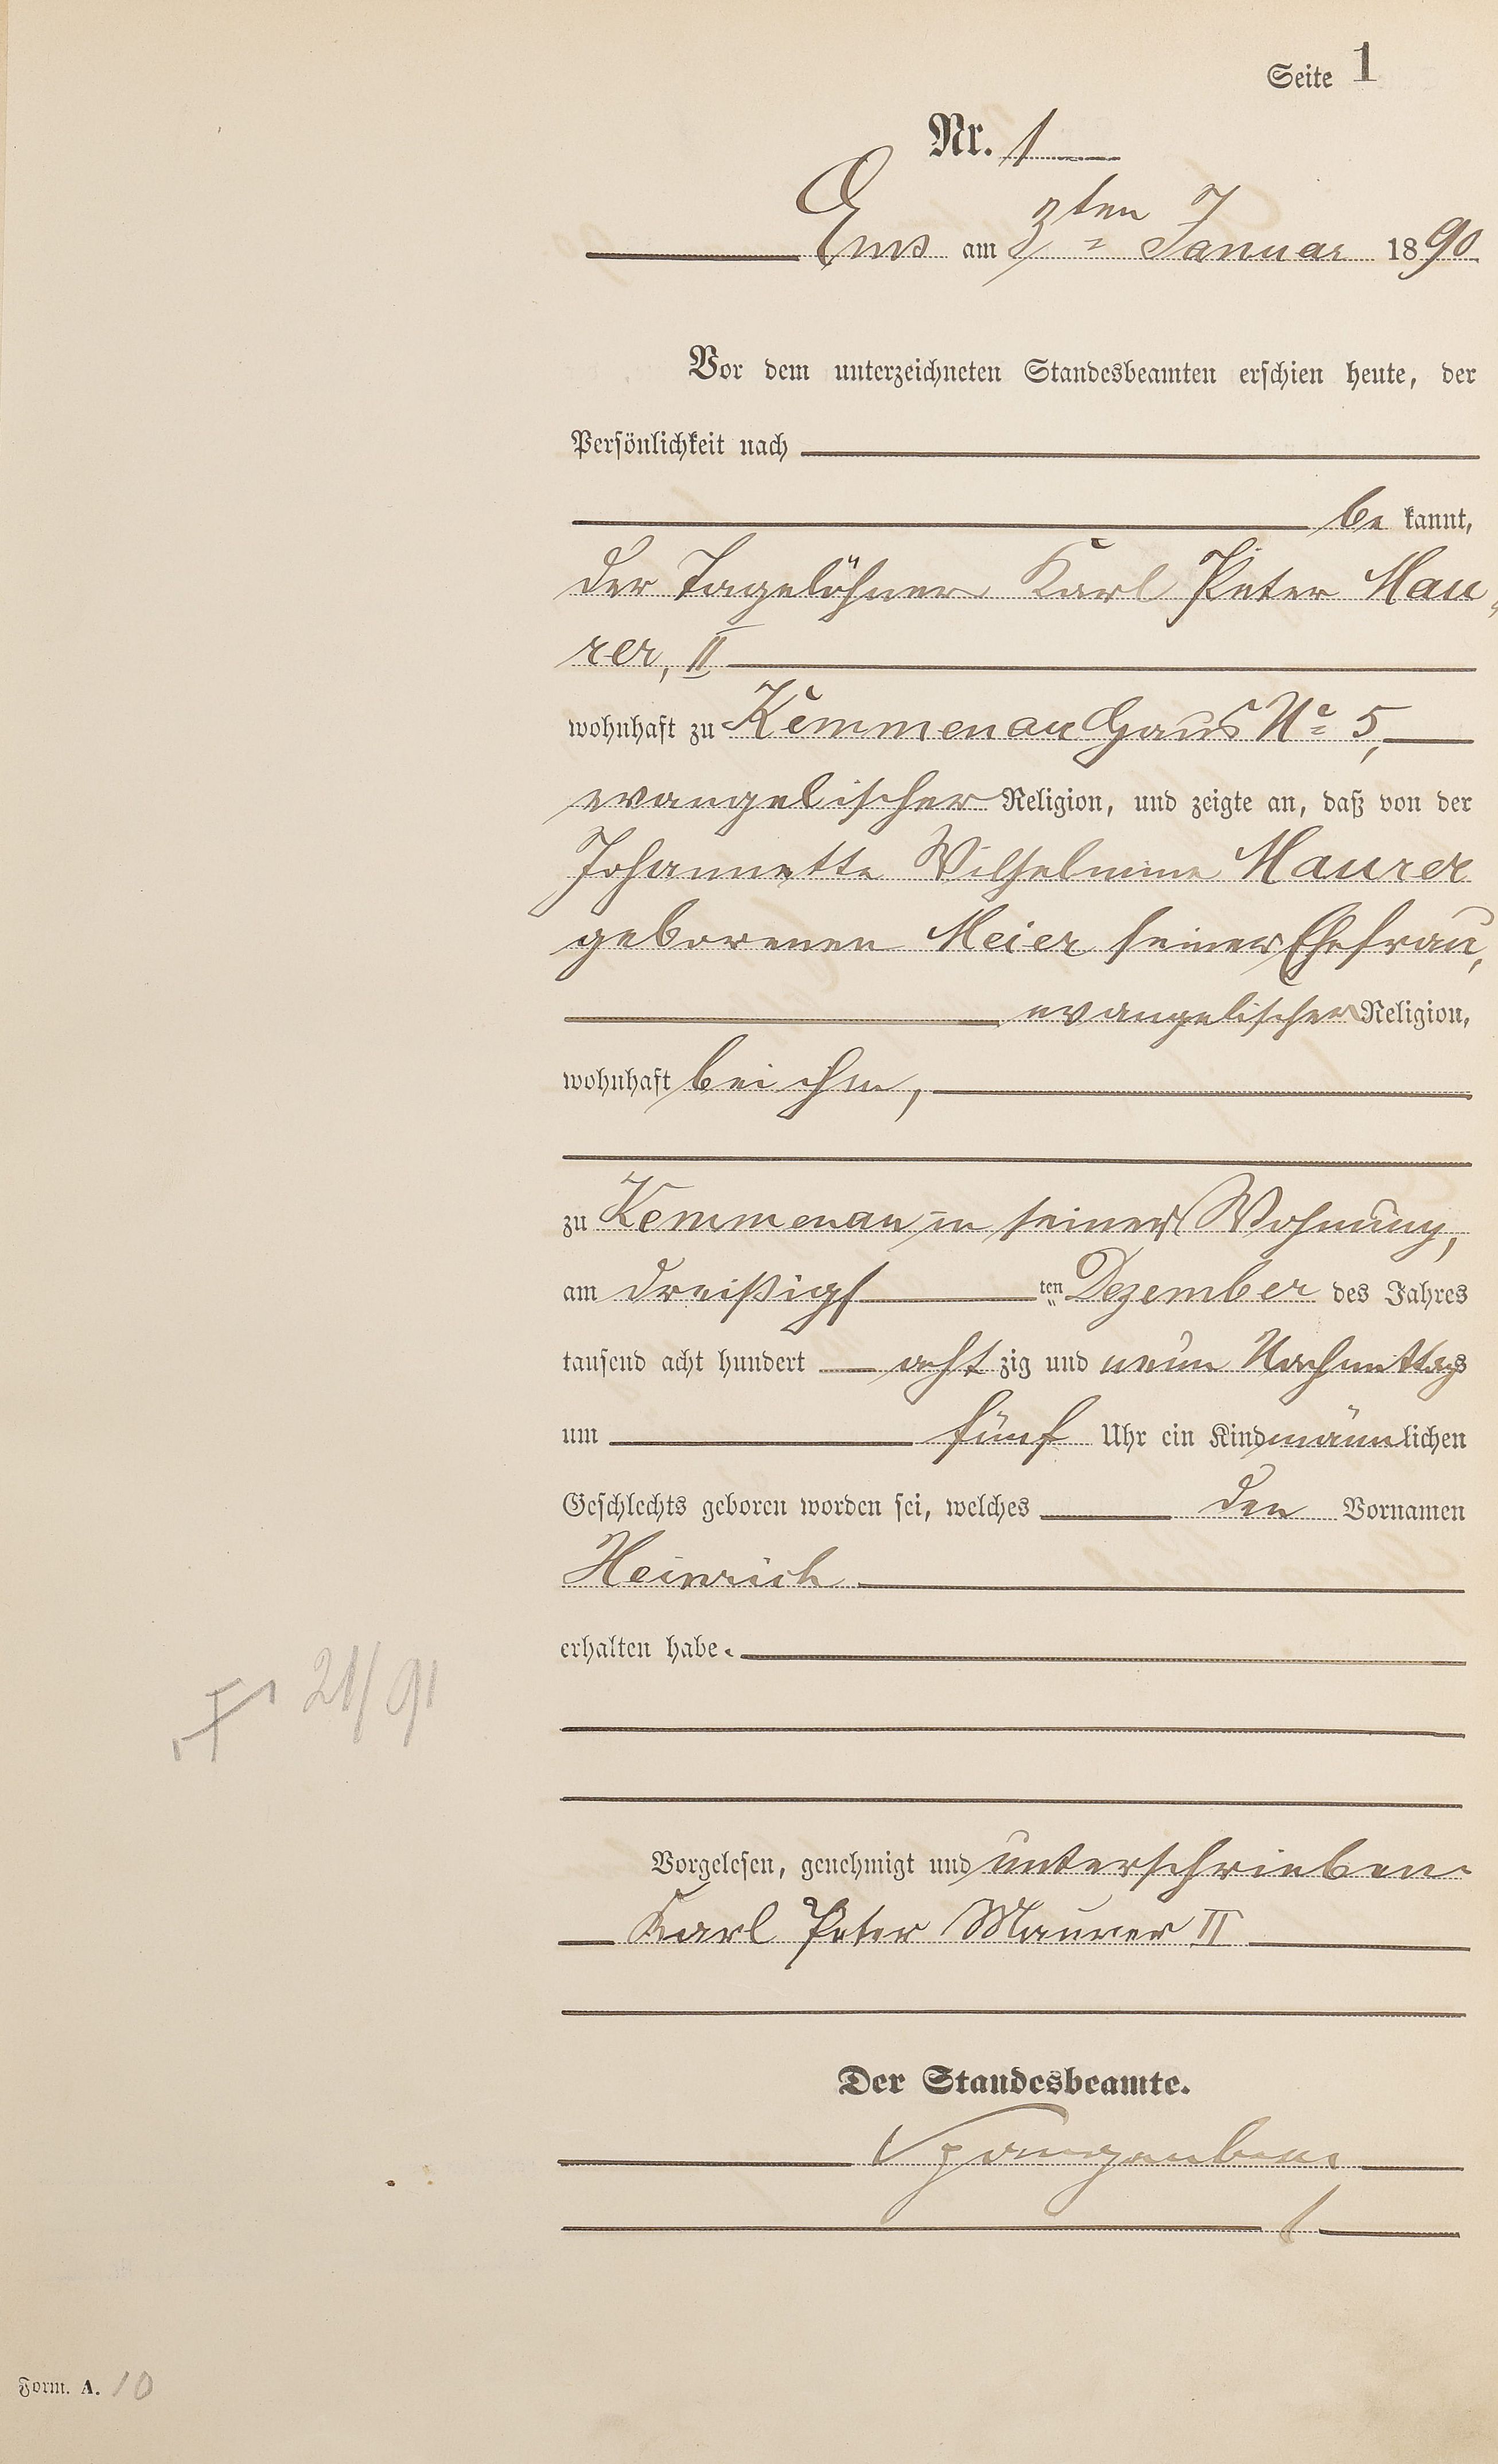 Seite 1
Nr. 1
Ems am 3ten Januar 1890
Vor dem unterzeichneten Standesbeamten erschien heute, der
Persönlichkeit nach
be kannt,
der Tagelöhner Karl Peter Mau-
rer, II
wohnhaft zu Kemmenau Haus No 5,
evangelischer Religion, und zeigte an, daß von der
Johannette Wilhelmine Maurer
geborenen Meier seiner Ehefrau,
evangelischer Religion,
wohnhaft bei ihm,
zu Kemmenau in seiner Wohnung,
am dreißigs ten Dezember des Jahres
tausend acht hundert acht zig und neun Nachmittags
um fünf Uhr ein Kind männlichen
Geschlechts geboren worden sei, welches den Vornamen
Heinrich
erhalten habe.
21/91
Vorgelesen, genehmigt und unterschrieben.
Karl Peter Maurer II
Der Standesbeamte.
Form. A. 10